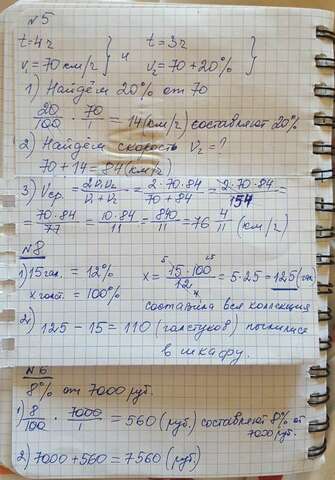 №5
t=4ч } и t=3ч }
v₁=70 км/ч v₂=70+20%
1) Найдём 20% от 70
20/100 · 70/1 = 14 (км/ч) составляют 20%
2) Найдем скорость V₂=?
70+14=84(км/ч)
3) Vср. = 2V₁V₂/V₁+V₂ = 2·70·84/70+84 = 2·70·84/154 =
= 70·84/77 = 10·84/11 = 840/11 = 76 4/11 (км/ч)
№8
1) 15 гал. = 12% x = 15·100/12 = 5·25 = 125 (гал)
x галст. = 100%
составила вся коллекция
2) 125 - 15 = 110 (галстуков) пылились
в шкафу.
№6
8% от 7000 руб.
1) 8/100 · 7000/1 = 560 (руб.) составляют 8% от
7000 руб.
2) 7000+560 = 7560 (руб)